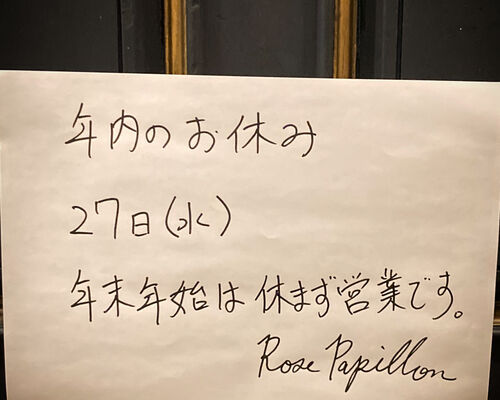 年内のお休み
27日(水)
年末年始は休まず営業です。
Rose Papillon